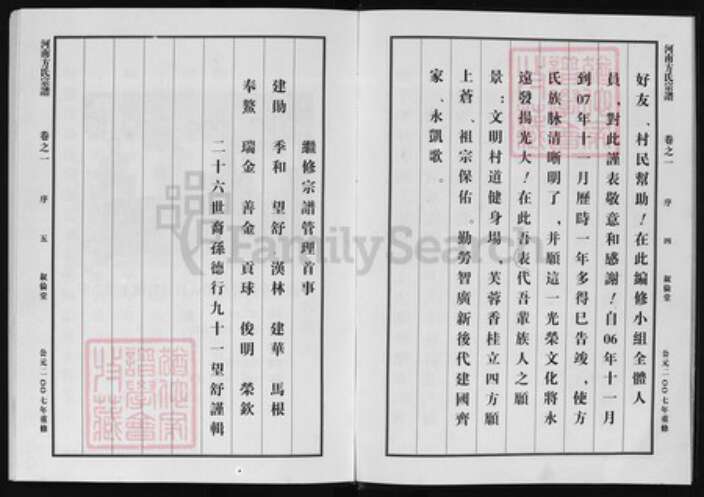 河南方氏宗譜 卷之一 序 四 敘倫堂 公元二00七年重修
好友、村民幫助！在此編修小組全體人
員，對此謹表敬意和感謝！自06年十一月
到07年十一月歷時一年多得巳告竣、使方
氏族脉清晰明了，并願這一光榮文化將永
遠發揚光大！在此吾表代吾輩族人之願
景：文明村道健身場、芙蓉香桂立四方願
上蒼、祖宗保佑。勤勞智廣新後代建國齊
家、永凱歌。
繼修宗譜管理首事
建勛 季和 望舒 漢林 建華 馬根
奉鰲 瑞金 善金 貢球 俊明 榮欽
二十六世裔孫德行九十一望舒謹輯
河南方氏宗譜 卷之一 序 五 敘倫堂 公元二00七年重修
FamilySearch